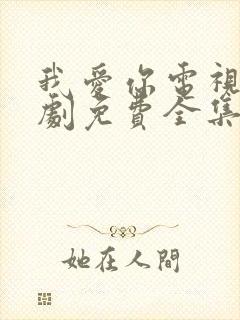 我愛你電視
劇免費全集
她在人間